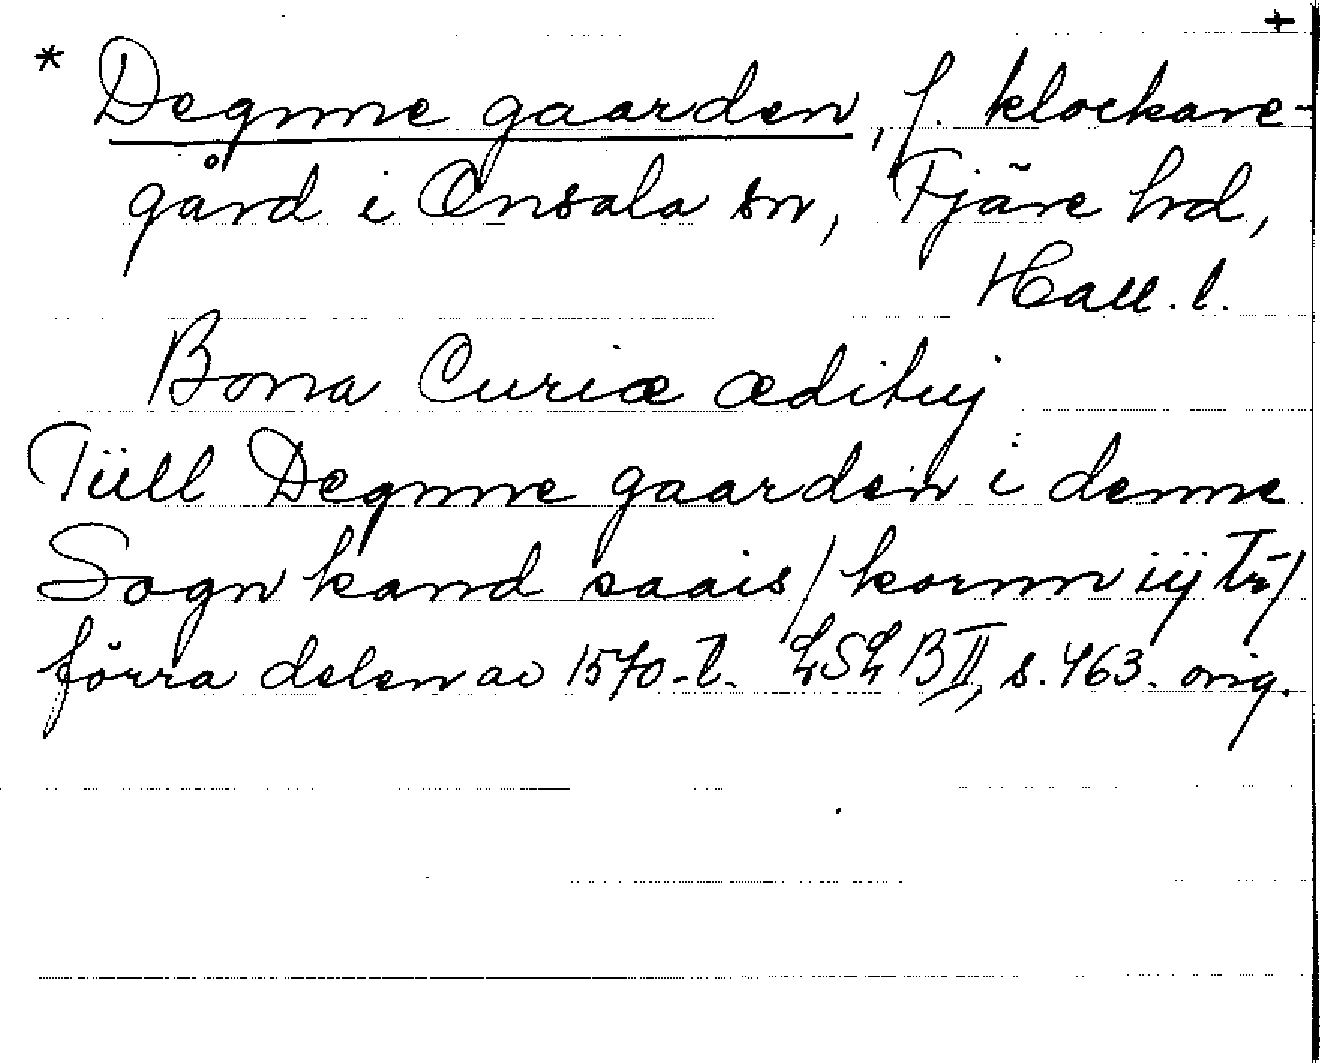 +
* Degnne gaarden, f. klockare-
gård i Onsala sn, Fjäre hrd,
Hall. l.
Bona Curiæ ædituj
Tüll Degnne gaarden i denne
Sogn kand saais / kornn iij Tr̄ /
förra delen av 1570-t. LSL B II, s. 463. orig.